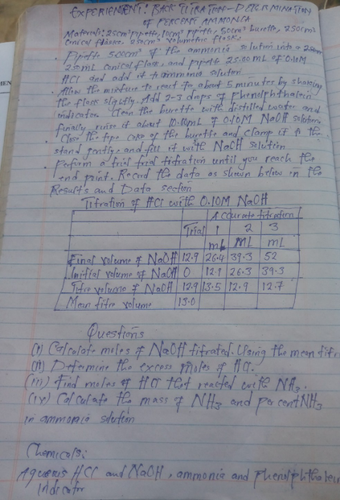 EXPERIMENT: BACK TITRATION - DETERMINATION
OF PERCENT AMMONIA
Materials: 25cm³ pipette, 10cm³ pipette, 50cm³ burette, 250ml
Conical flask, volumetric flask
Pipette of the ammonia solution into a
250mL conical flask, and pipette 25.00mL of 0.10M
HCl and add it to ammonia solution
• Allow the mixture to react for about 5 minutes by shaking
the flask slightly. Add 2-3 drops of Phenolphthalein
indicator. Then the burette with distilled water and
finally rinse it about of 0.10M NaOH solution
• Close the tap of the burette and clamp it to the
stand partly, and fill it with NaOH solution
• Perform a trial titration until you reach the
end point. Record the data as shown below in the
Results and Data section
Titration of HCl with 0.10M NaOH
Accurate titration
Trial 1 2 3
mL mL mL
Final volume of NaOH 12.9 26.4 39.3 52
Initial volume of NaOH 0 12.9 26.3 39.3
Titre volume of NaOH 12.9 13.5 12.9 12.7
Mean titre volume 13.0
Questions
(i) Calculate moles of NaOH titrated. Using the mean titre
(ii) Determine the excess moles of HCl.
(iii) Find moles of HCl that reacted with NH₃.
(iv) Calculate the mass of NH₃ and percent NH₃
in ammonia solution
Chemicals:
Aqueous HCl and NaOH, ammonia and phenolphthalein
Indicator